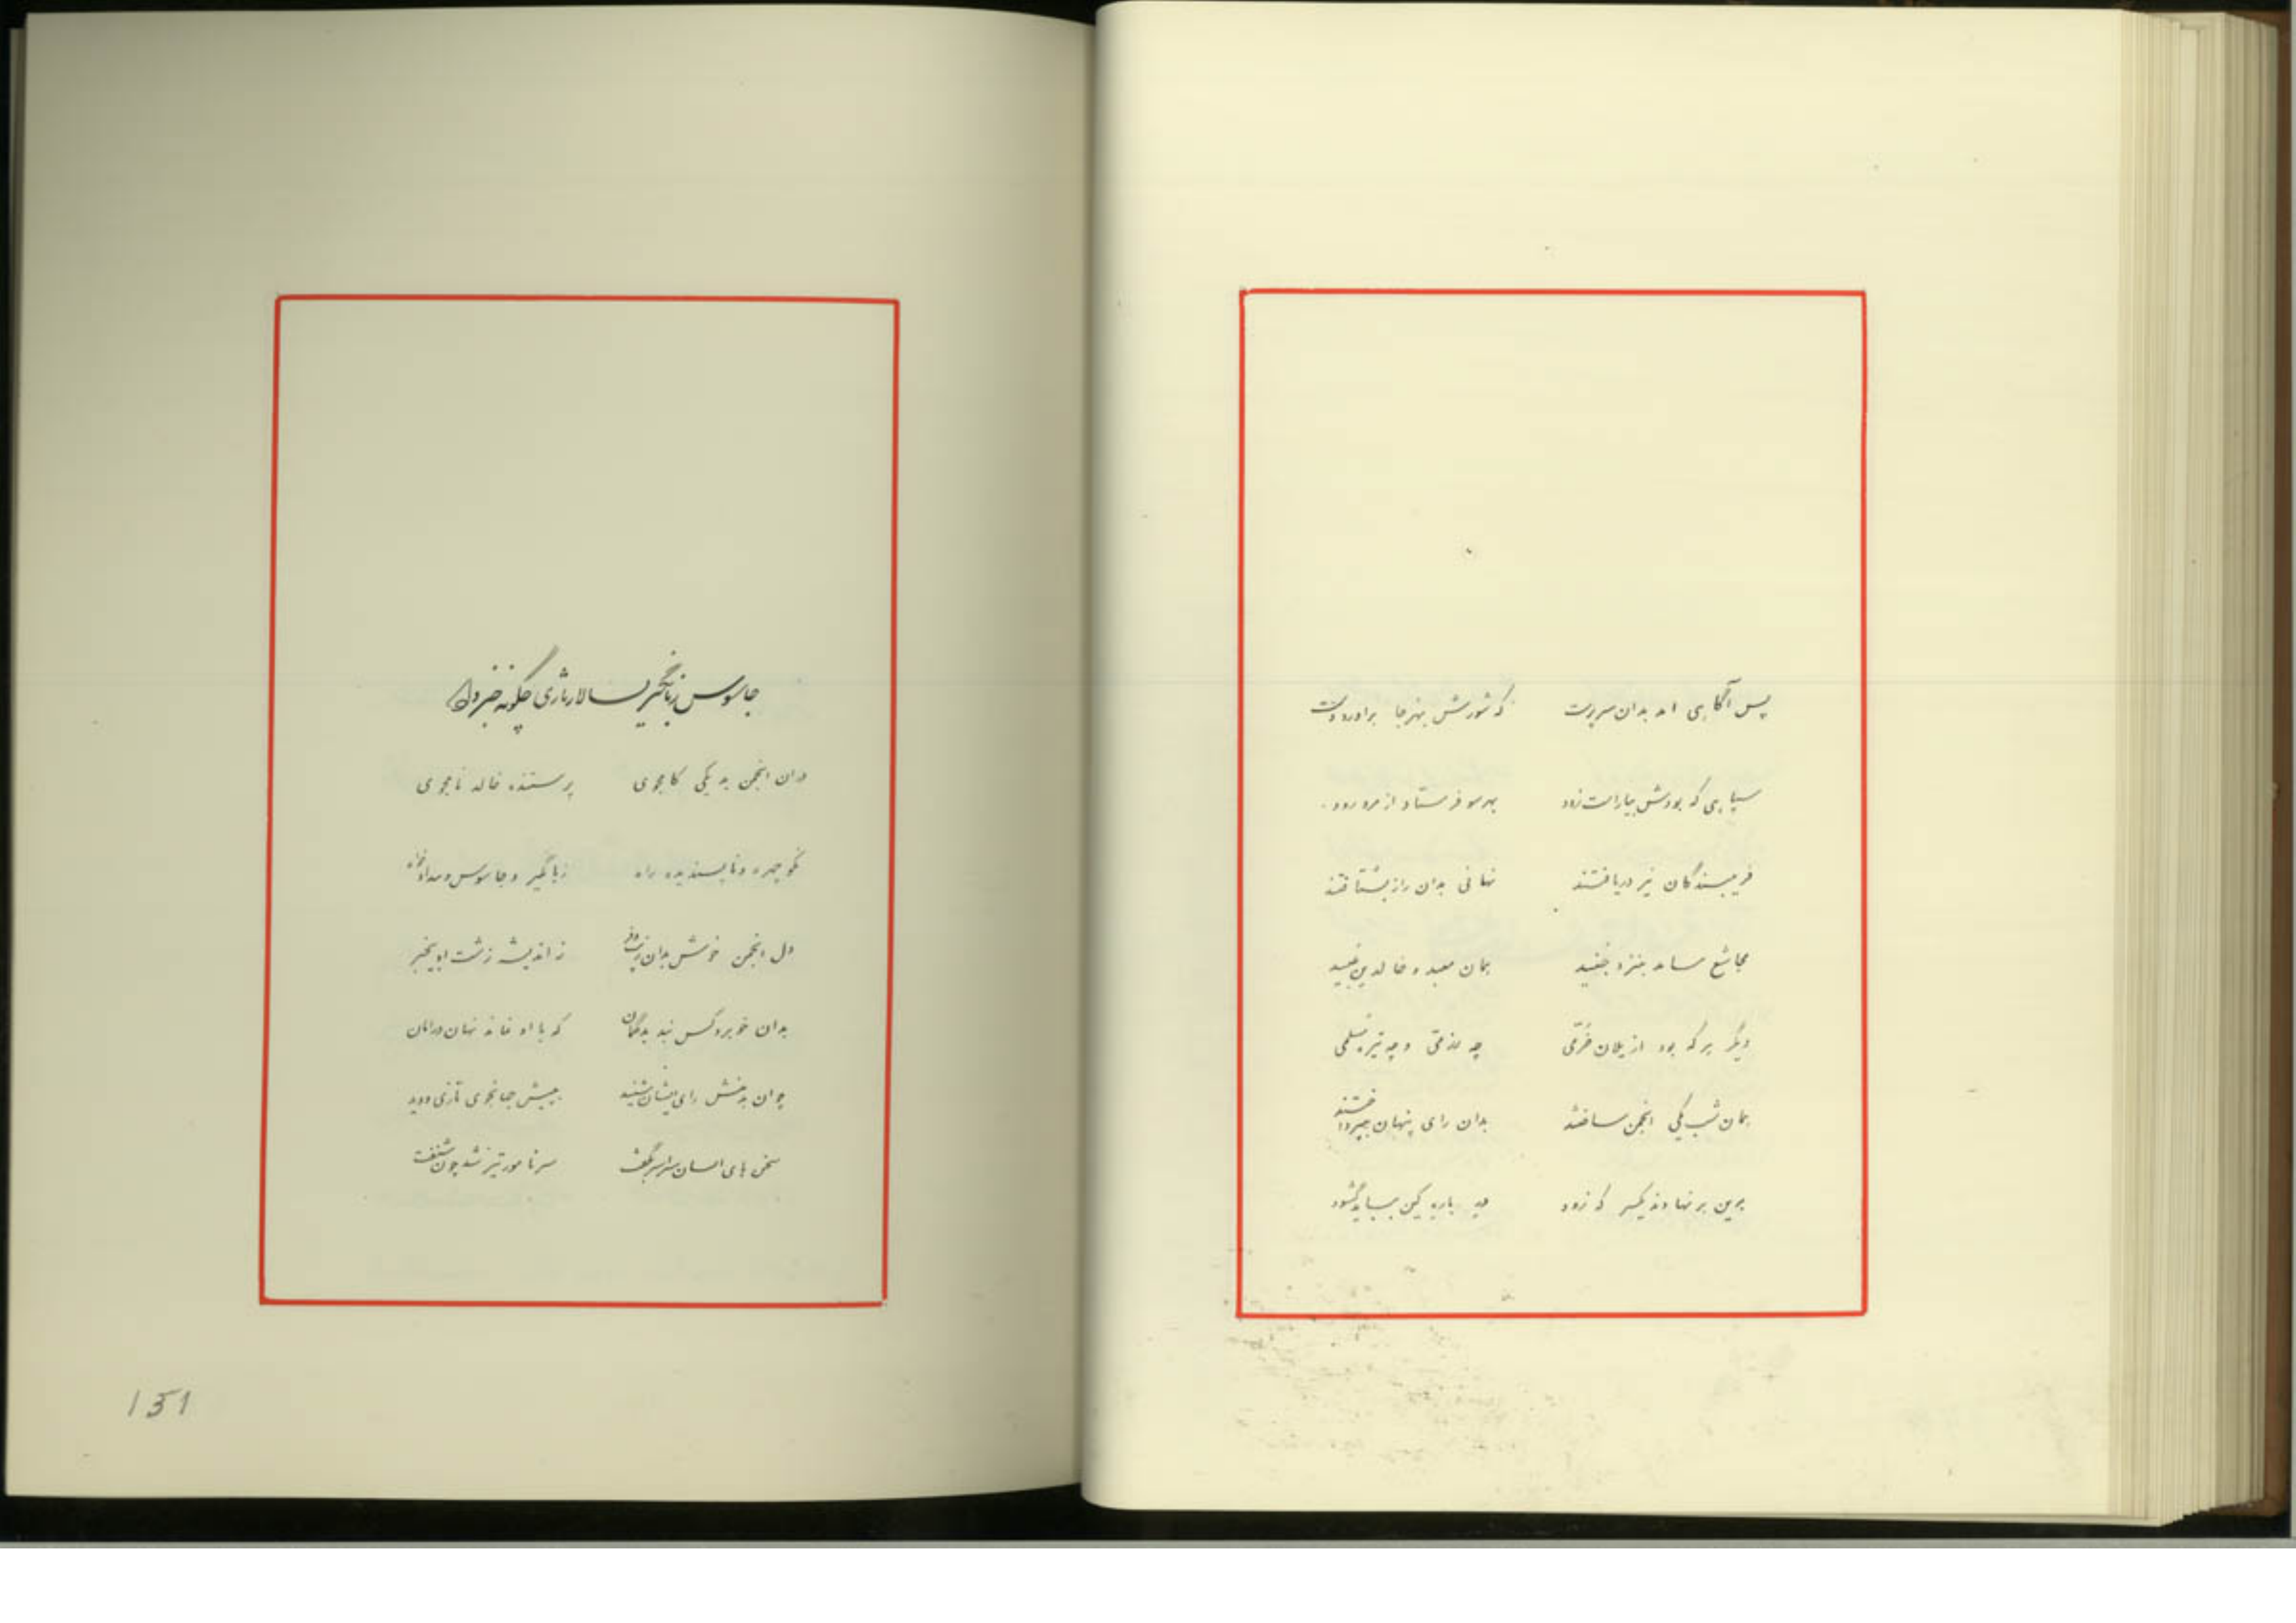 پس آگاهی امد بدان سرپرست که شورش بهرجا براورد دست
سپاهی که بودش بیاراست زود بهرسو فرستاد از مرورود
فریبندگان نیز دریافتند نهانی بدان راز بشتافتند
مجاشع سامد بنزد جنید همان معبد و خالد بن عبید
دیگر هرکه بود از یلان خرمی چه و چه تیره مسلمی
همان شب یکی انجمن ساختند بدان رای پنهان بپرداختند
برین برنهادند یکسر که زود در باره کین بباید گشود
جاسوس زبانگیر بسالار تازی چگونه خبر داد
دران انجمن بد یکی کامجوی پرستنده خالد نامجوی
نکو چهره و ناپسندیده راه زبانگیر و جاسوس و
دل انجمن خوش بدان ز اندیشه زشت او بیخبر
بدان خوبرو کس نبد بدگمان که با او نماند نهان در امان
جوان بدمنش رای ایشان شنید به پیش جهانجوی تازی دوید
سخن های ایشان سراسر بگفت سر نامور تیز شد چون شنفت
151